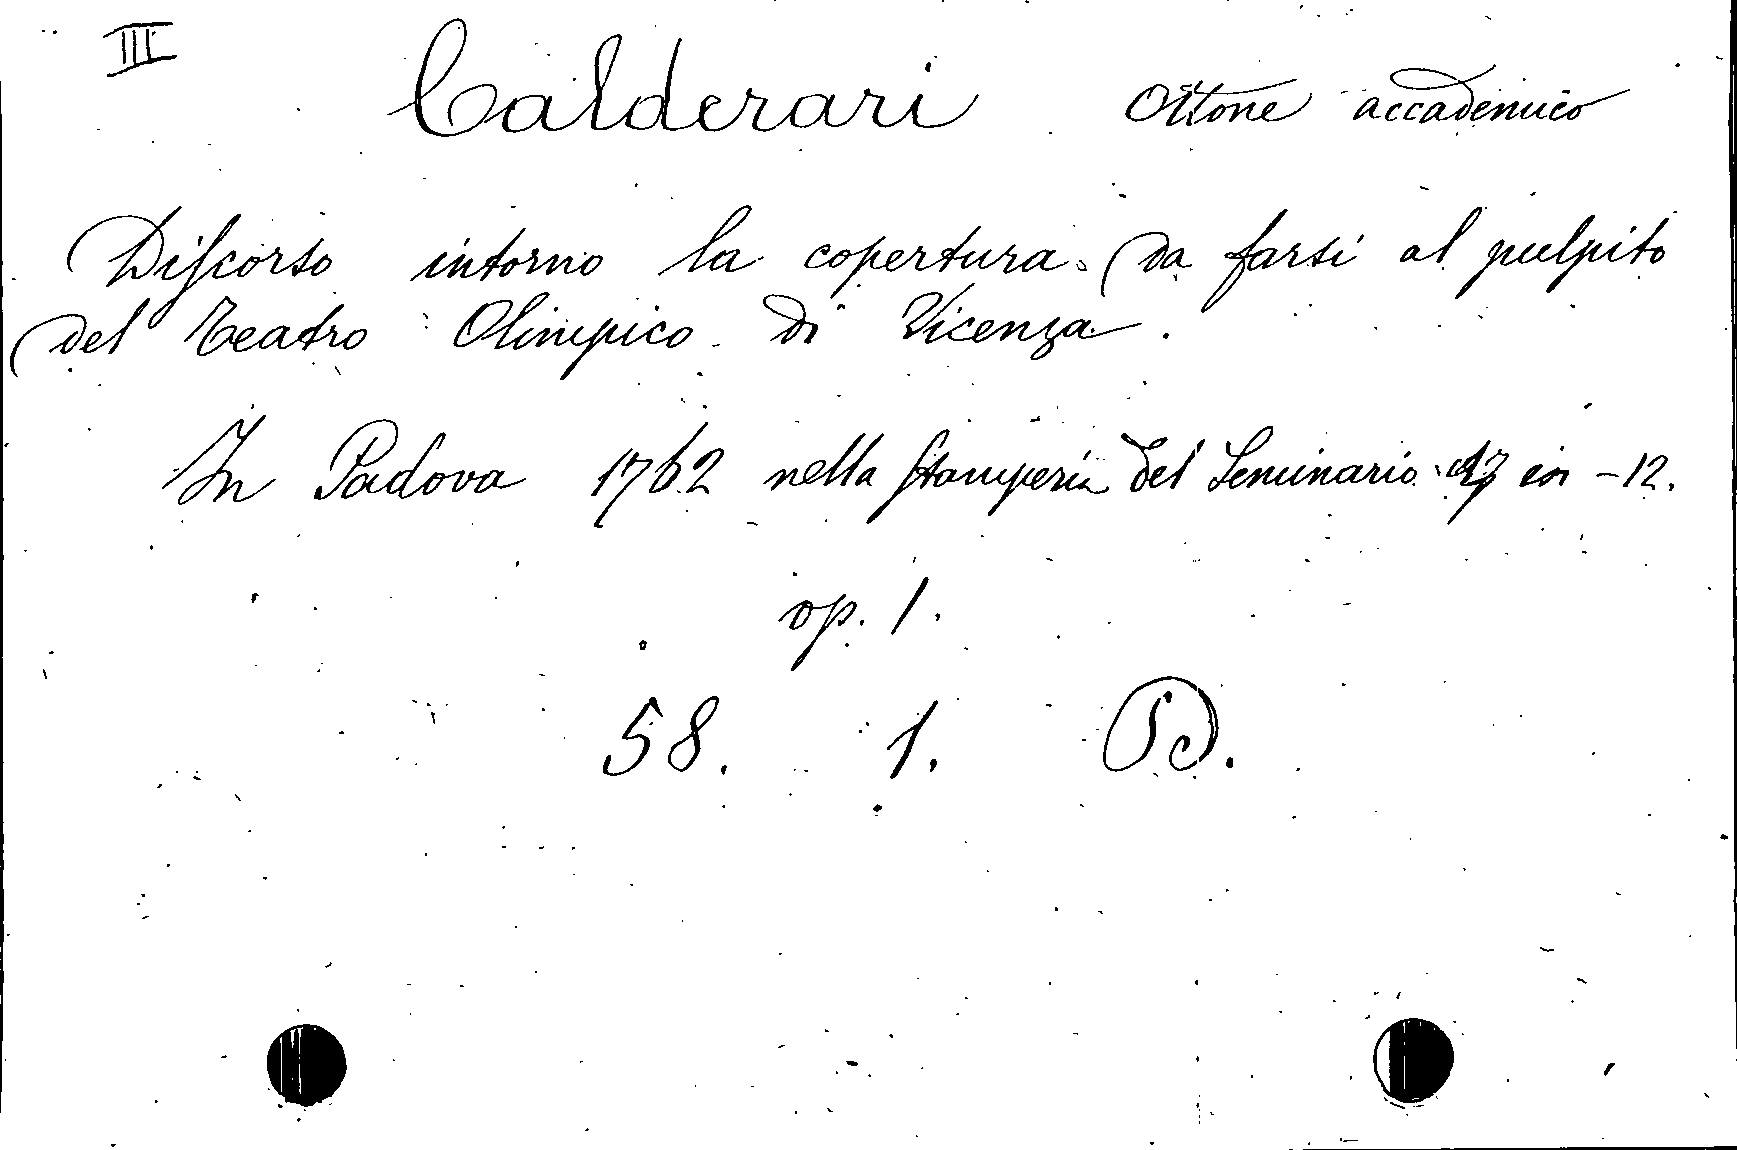 III
Calderari Ottone accademico
Diſcorso intorno la copertura da farsi al pulpito
del Teatro Olimpico di Vicenza.
In Padova 1762 nella ſtamperia del Seminario in -12.
op. 1.
58. 1. D.